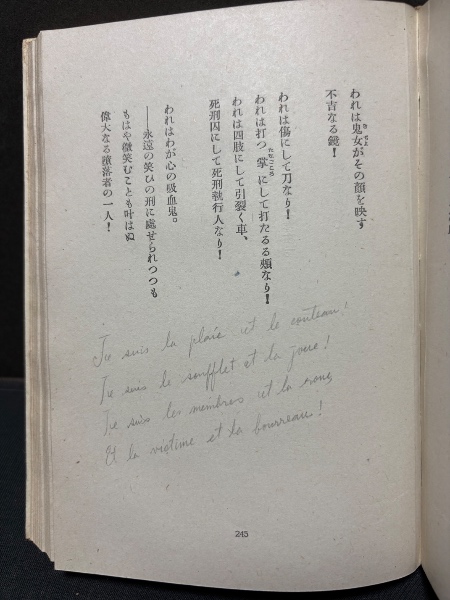 われは鬼女がその顔を映す
きぢよ
不吉なる鏡！
われは傷にして刀なり！
われは打つ掌にして打たるる頰なり！
たなごころ
われは四肢にして引裂く車、
死刑囚にして死刑執行人なり！
われはわが心の吸血鬼。
――永遠の笑ひの刑に處せられつつも
もはや微笑むことも叶はぬ
偉大なる墮落者の一人！
Je suis la plaie et le couteau!
Je suis le soufflet et la joue!
Je suis les membres et la roue,
Et la victime et la bourreau!
245